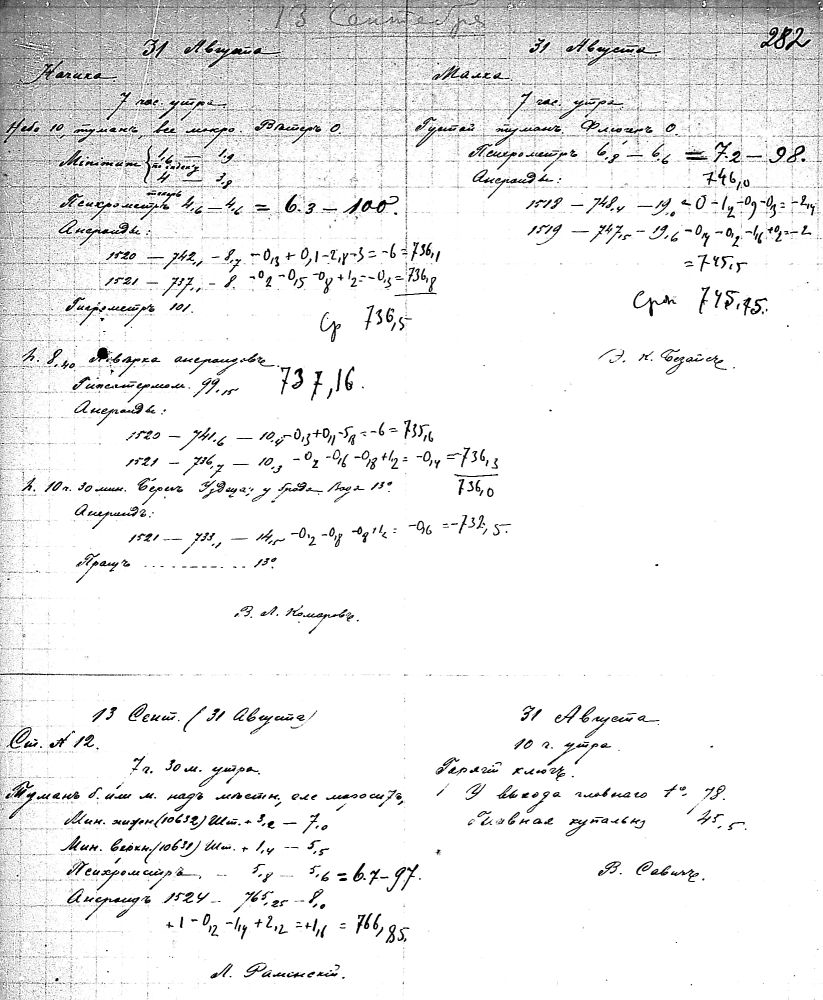 13 Сентября
282
31 Августа
Начика
7 час. утра
Небо 10, туманъ, все мокро. Вѣтеръ 0.
Minimum
1,6 — 1,9
4 — 3,8
Психрометръ 4,6 — 4,6 = 6.3 — 100.
Анероиды:
1520 — 742,1 — 8,7 -0,3 + 0,1 - 2,8 - 3 = -6 = 736,1
1521 — 737,1 — 8. -0,2 -0,5 -0,8 + 1,2 = -0,3 = 736,8
Гигрометръ 101.
Ср 736,5
h. 8,40 Повѣрка анероидовъ.
Гипсотермом. 99,15 737,16.
Анероиды:
1520 — 741,6 — 10,4 -0,3 +0,1 -5,8 = -6 = 735,6
1521 — 736,7 — 10,3 -0,2 -0,6 -0,8 +1,2 = -0,4 = 736,3
736,0
h. 10 ч. 30 мин. Берегъ у брода Вода 13°
Анероидъ:
1521 — 733,1 — 14,5 -0,2 -0,8 -0,8 +1,2 = -0,6 = 732,5.
Пращъ ............ 13°
В. Л. Комаровъ.
31 Августа
Малка
7 час. утра
Густой туманъ. Флюгеръ 0.
Психрометръ 6,8 — 6,6 = 7.2 — 98.
Анероиды: 746,0
1518 — 748,4 — 19,0 - 0 - 1,2 - 0,9 - 0,3 = -2,4
1519 — 747,5 — 19,6 -0,4 -0,2 -1,6 +0,2 = -2
= 745,5
Срдн 745,75.
Э. К. Безайсъ.
13 Сент. (31 Августа)
Ст. N 12.
7 ч. 30 м. утра.
Туманъ б. или м. надъ мѣстн, еле мороситъ,
Мин. нижн. (10632) Шт. + 3,2 — 7,0
Мин. верхн. (10631) Шт. + 1,4 — 5,5
Психрометръ. - 5,8 — 5,6 = 6.7 — 97.
Анероидъ 1524 — 765,25 — 8,0
+1 - 0,2 - 1,4 + 2,2 = +1,6 = 766,85.
Л. Раменскій.
31 Августа
10 ч. утра.
Горячій ключъ.
У выхода главнаго t°. 78.
Главная купальня 45,5.
В. Савичъ.